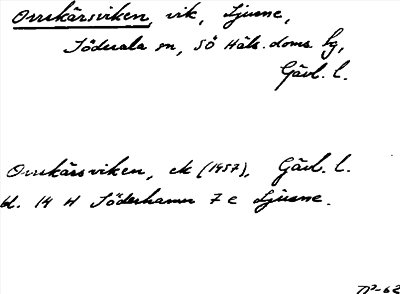 Orrekärsviken, vik, Ljusne,
Söderala sn, SÖ Häls. doms bg,
Gävl. l.
Orrekärsviken, ek (1957), Gävl. l.
bl. 14 H Söderhamn 7 e Ljusne.
TP-62